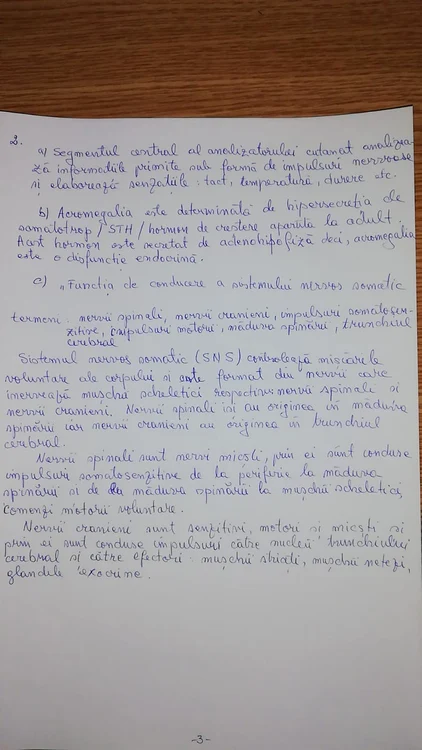 2.
a) Segmentul central al analizatorului cutanat analizea-
ză informațiile primite sub formă de impulsuri nervoase
și elaborează senzațiile: tact, temperatură, durere etc.
b) Acromegalia este determinată de hipersecreția de
somatotrop / STH / hormon de creștere apărută la adult.
Acest hormon este secretat de adenohipofiză deci, acromegalia
este o disfuncție endocrină.
c) "Funcția de conducere a sistemului nervos somatic
termeni: nervii spinali, nervii cranieni, impulsuri somatosen-
zitive, impulsuri motorii, măduva spinării, trunchiul
cerebral
Sistemul nervos somatic (SNS) controlează mișcările
voluntare ale corpului și este format din nervii care
inervează mușchii scheletici respectiv: nervii spinali și
nervii cranieni. Nervii spinali își au originea în măduva
spinării iar nervii cranieni au originea în trunchiul
cerebral.
Nervii spinali sunt nervi micști, prin ei sunt conduse
impulsuri somatosenzitive de la periferie la măduva
spinării și de la măduva spinării la mușchii scheletici,
comenzi motorii voluntare.
Nervii cranieni sunt senzitivi, motori și micști și
prin ei sunt conduse impulsuri către nucleii trunchiului
cerebral și către efectori: mușchii striați, mușchii netezi,
glandele exocrine.
-3-